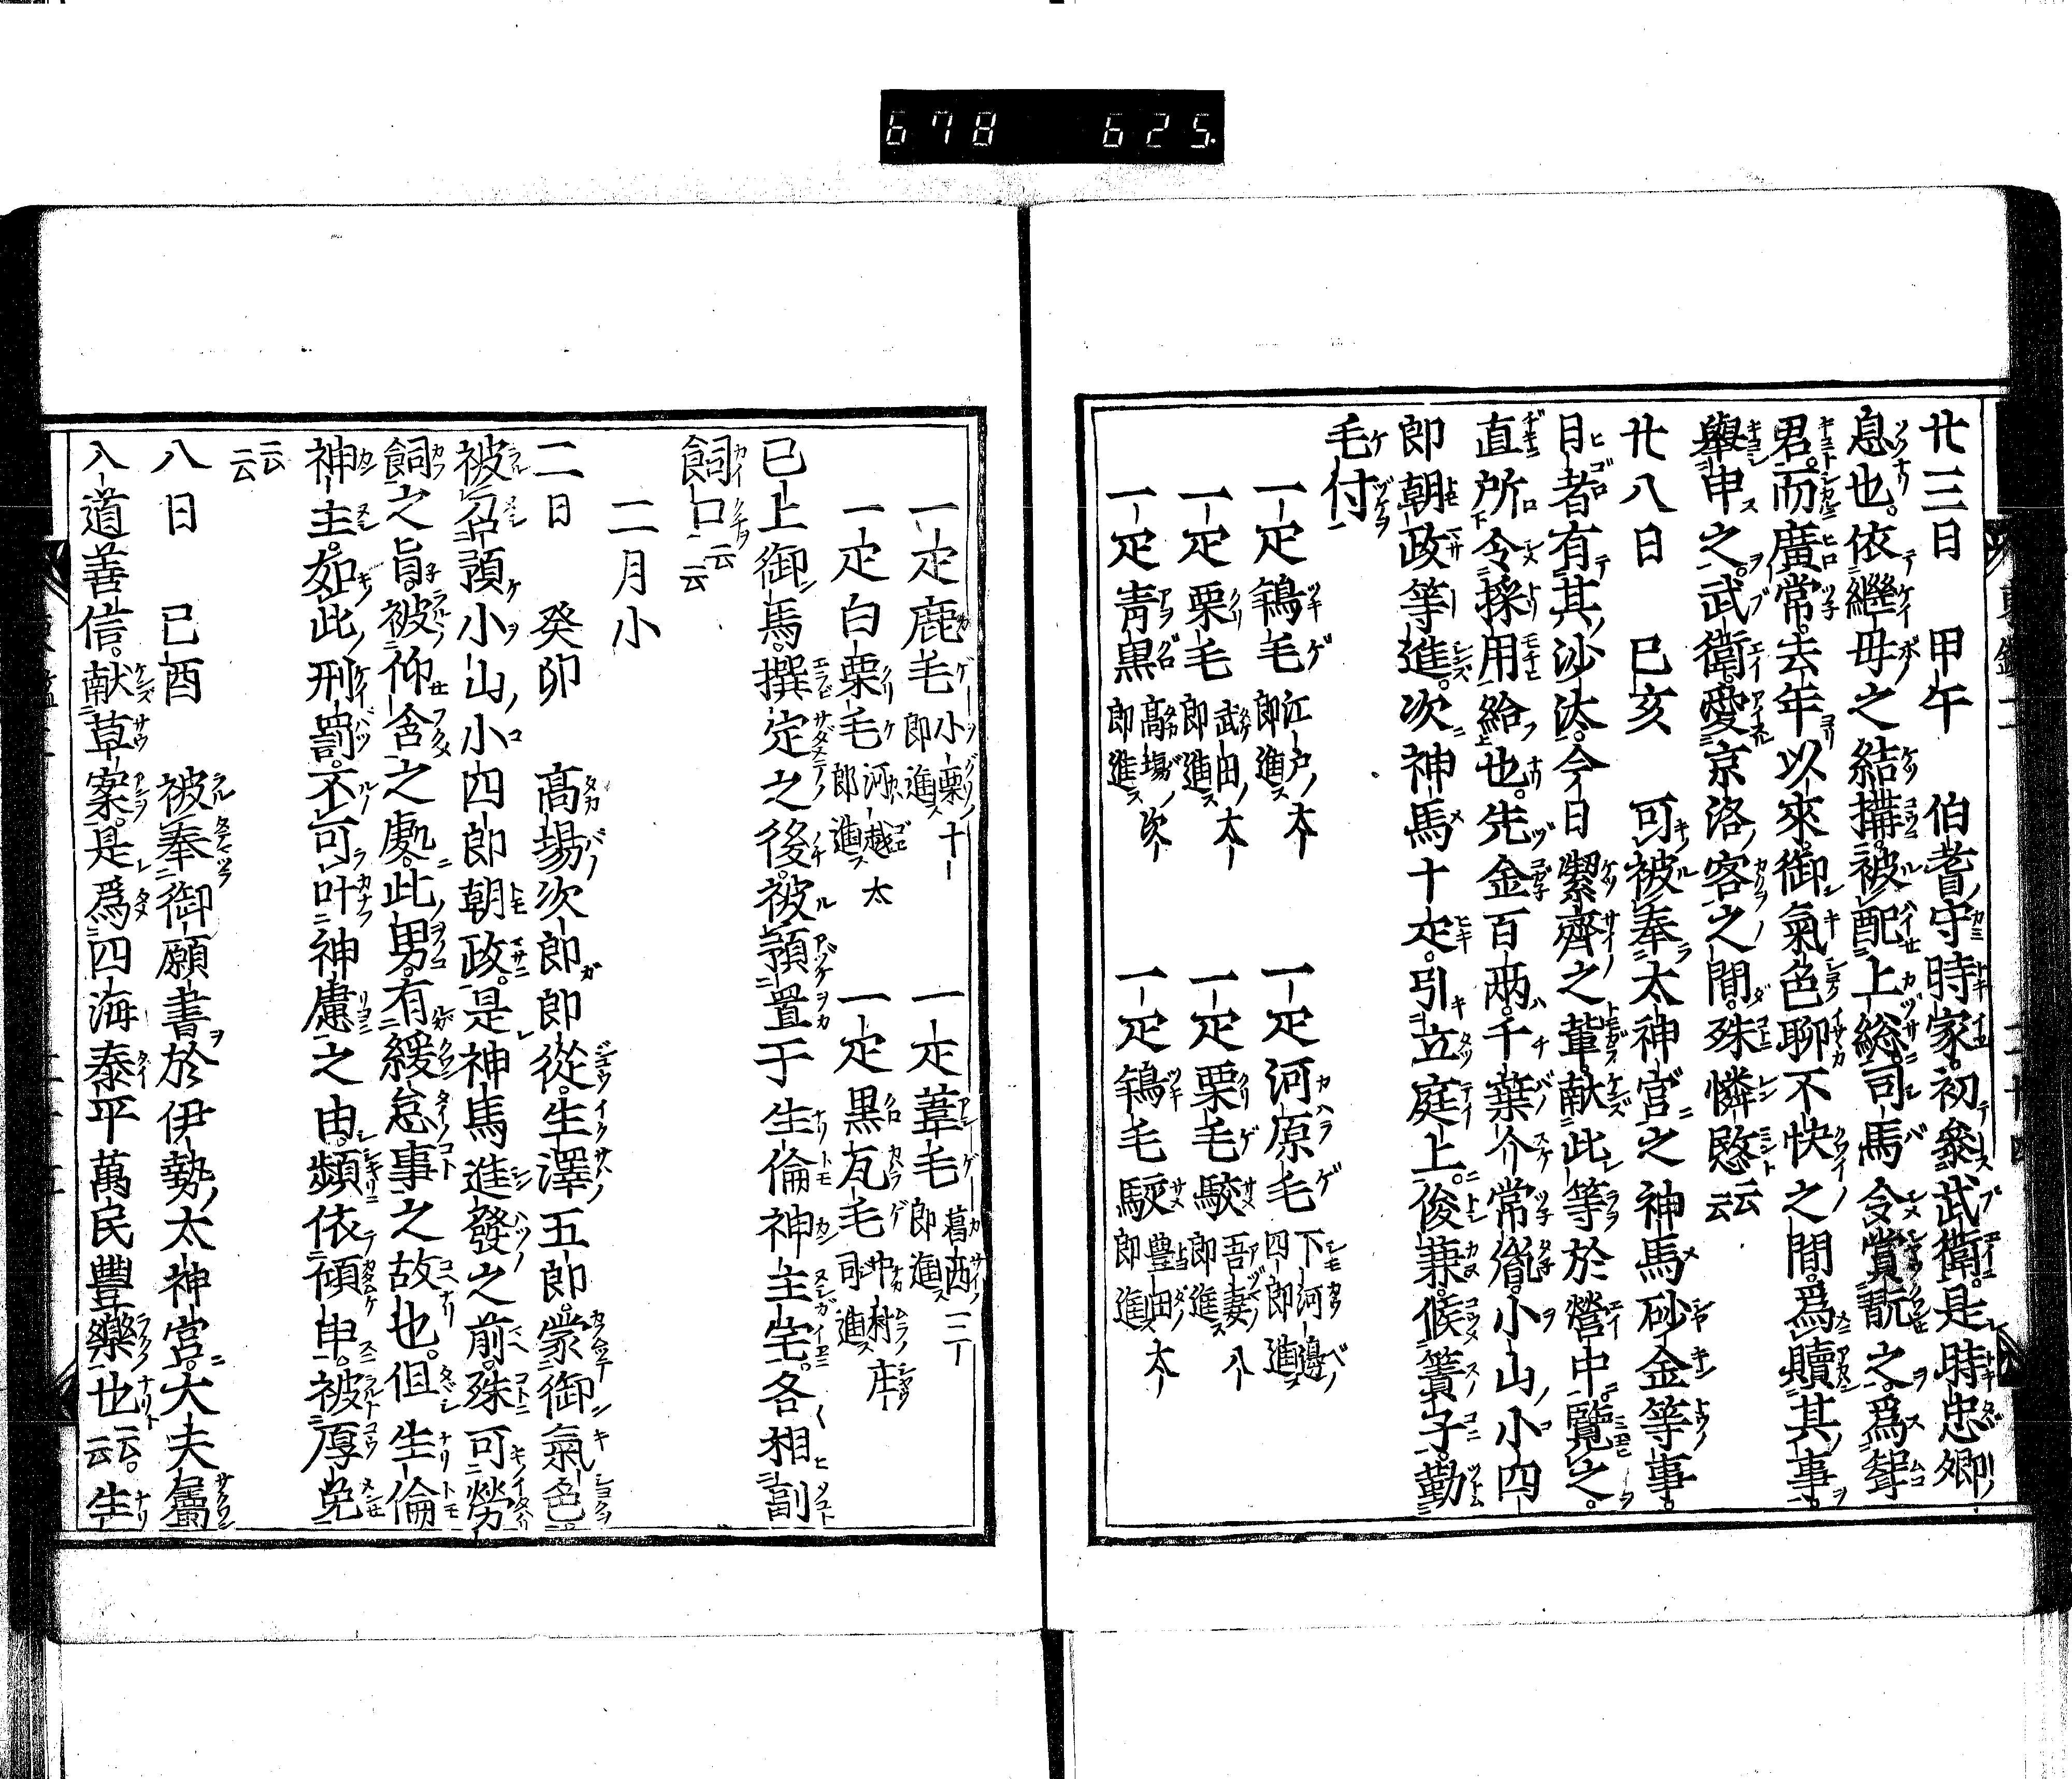 678 625
廿三日 甲午 伯耆守時家初參武衛是時忠卿
息也依繼母之結搆被配上総司馬令賞翫之爲聟
君而廣常去年以來御氣色聊不快之間爲贖其事
擧申之武衛愛京洛客之間殊憐愍云云
廿八日 巳亥 可被奉太神宮之神馬砂金等事
日者有其沙汰今日潔齊之輩献此等於營中覽之
直所令採用給也先金百兩千葉介常胤小山小四
郎朝政等進次神馬十疋引立庭上俊兼候簀子勤
毛付
一疋鴾毛 江戸太郎進 一疋河原毛 下河邊四郎進
一疋栗毛 武田太郎進 一疋栗毛駮 吾妻八郎進
一疋青黒 高塲次郎進 一疋鴾毛駮 豊田太郎進
一疋鹿毛 小栗十郎進 一疋葦毛 葛西三郎進
一疋白栗毛 河越太郎進 一疋黒瓦毛 中村庄司進
已上御馬撰定之後被預置于生倫神主宅各相副
飼口云云
二月小
二日 癸卯 高塲次郎郎從生澤五郎蒙御氣色
被召預小山小四郎朝政是神馬進發之前殊可勞
飼之旨被仰含之處此男有緩怠事之故也但生倫
神主如此刑罰不可叶神慮之由頻依傾申被厚免
云云
八日 已酉 被奉御願書於伊勢太神宮大夫屬
入道善信献草案是爲四海泰平萬民豊樂也云云生